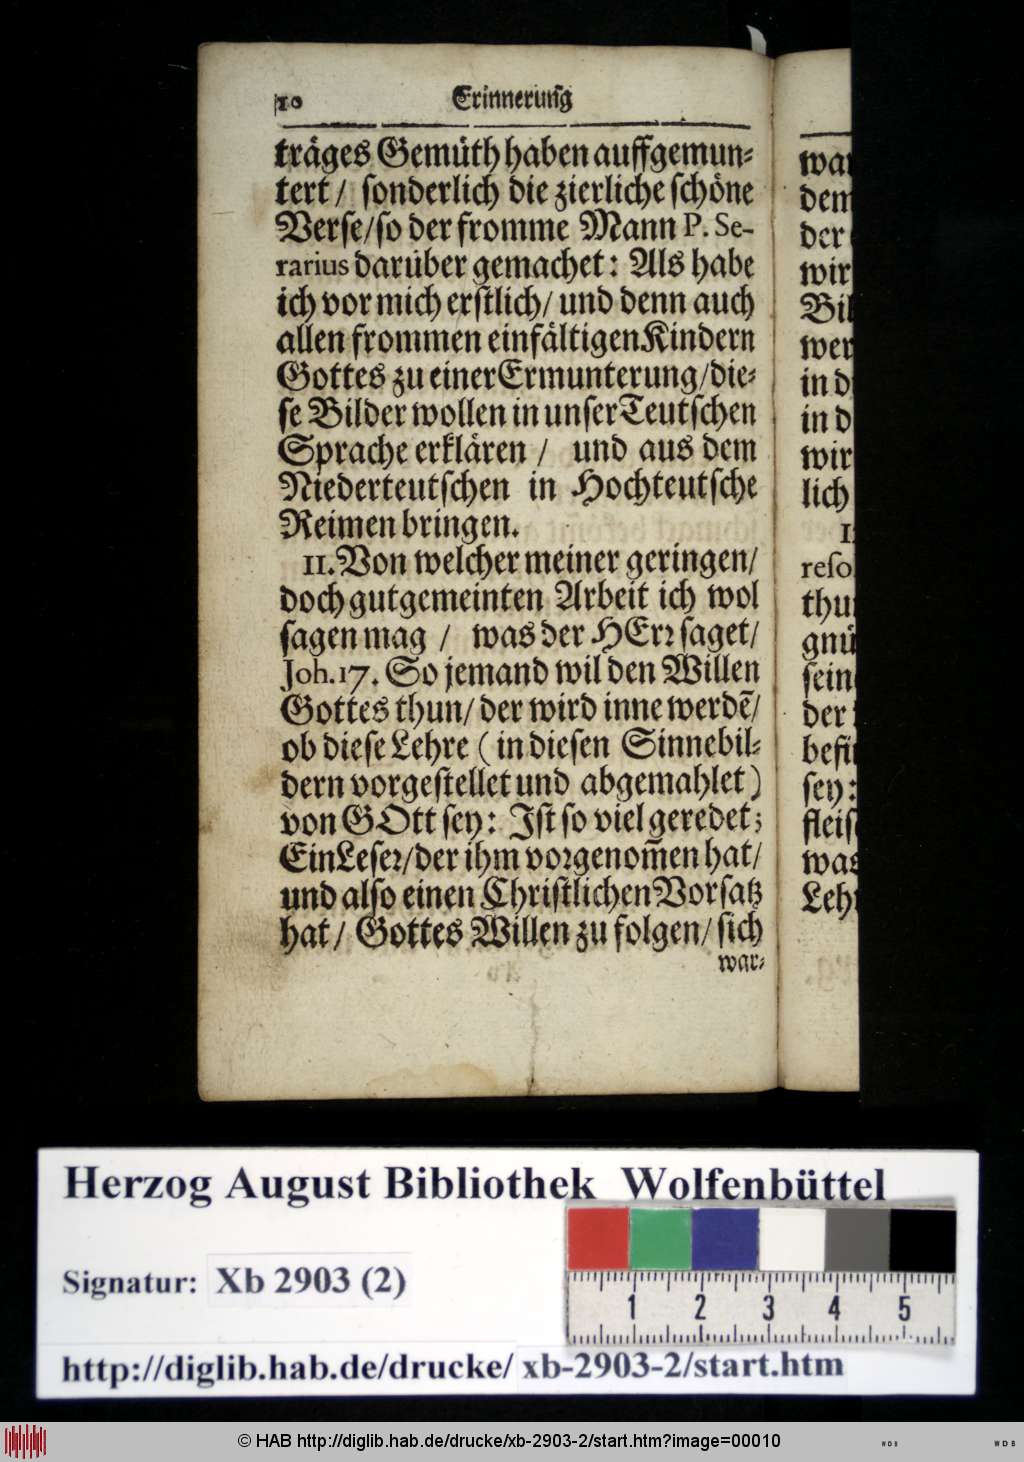 10 Erinnerung
träges Gemüth haben auffgemun-
tert / sonderlich die zierliche schöne
Verse / so der fromme Mann P. Se-
rarius darüber gemachet: Als habe
ich vor mich erstlich / und denn auch
allen frommen einfältigen Kindern
Gottes zu einer Ermunterung / die-
se Bilder wollen in unser Teutschen
Sprache erklären / und aus dem
Niederteutschen in Hochteutsche
Reimen bringen.
11. Von welcher meiner geringen /
doch gutgemeinten Arbeit ich wol
sagen mag / was der HErr saget /
Joh. 17. So jemand wil den Willen
Gottes thun / der wird inne werdē /
ob diese Lehre ( in diesen Sinnebil-
dern vorgestellet und abgemahlet )
von GOtt sey: Ist so viel geredet;
Ein Leser / der ihm vorgenom̄en hat /
und also einen Christlichen Vorsatz
hat / Gottes Willen zu folgen / sich
war-
dem
der
wir
in d
in d
wir
lich
sey:
was
Herzog August Bibliothek Wolfenbüttel
Signatur: Xb 2903 (2)
1 2 3 4 5
http://diglib.hab.de/drucke/ xb-2903-2/start.htm
© HAB http://diglib.hab.de/drucke/xb-2903-2/start.htm?image=00010
WDB WDB